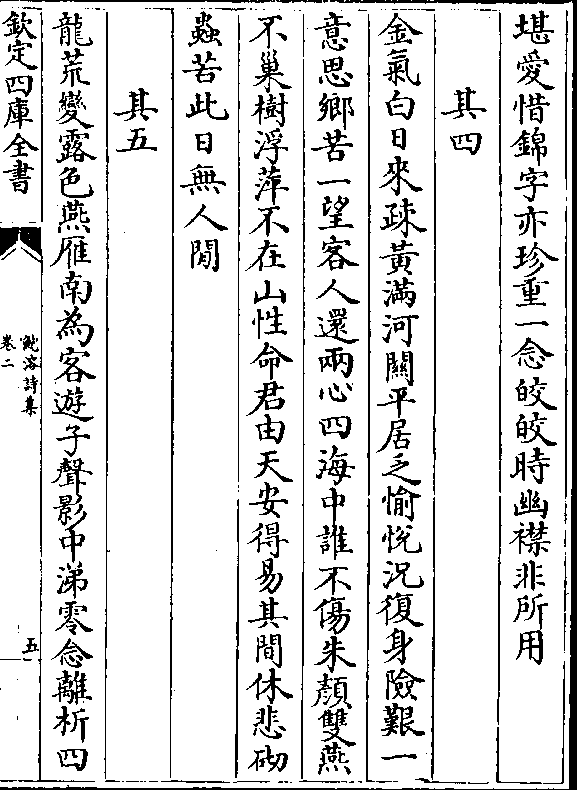 堪愛惜錦字亦珍重一念皎皎時幽襟非所用
其四
金氣白日來疎黃滿河關平居乏愉悅況復身險艱一
意思鄉苦一望客人還兩心四海中誰不傷朱顏雙燕
不巢樹浮萍不在山性命君由天安得易其間休悲砌
蟲苦此日無人閒
其五
龍荒變露色燕雁南為客遊子聲影中涕零念離析四
欽定四庫全書
鮑溶詩集
卷二
五